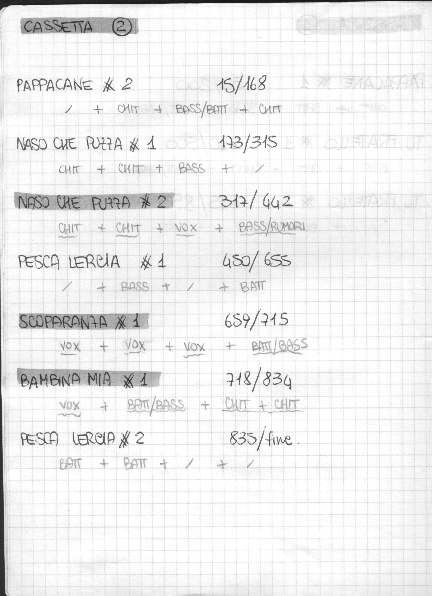 CASSETTA ②
PAPPACANE # 2 15/168
/ + CHIT + BASS/BATT + CHIT
NASO CHE PUZZA # 1 173/315
CHIT + CHIT + BASS + /
NASO CHE PUZZA # 2 317/442
CHIT + CHIT + VOX + BASS/RUMORI
PESCA LERCIA # 1 450/655
/ + BASS + / + BATT
SCOPARANZA # 1 659/715
VOX + VOX + VOX + BATT/BASS
BAMBINA MIA # 1 718/834
VOX + BATT/BASS + CHIT + CHIT
PESCA LERCIA # 2 835/fine.
BATT + BATT + / + /